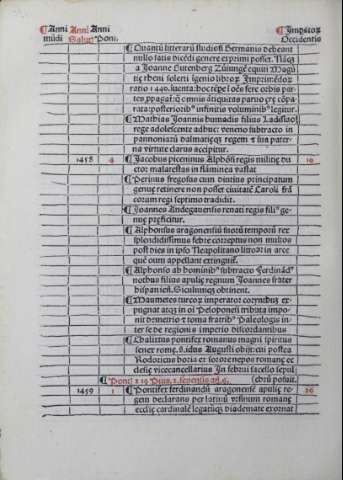 Anni Anni Anni Impstoꝝ
mūdi Salut⁹ Pont. Occidentis
¶ Quantū litterarū studiosi Germanis debeant
nullo satis dicēdi genere exprimi possz. Nāqꝫ
a Joanne Gutenberg Zūiungē equiti Magū
tie rheni solerti ingenio libroꝝ Imprimēdoꝝ
ratio 1440. inuenta: hoc tꝑe ī oēs fere orbis par
tes ꝓpagať: q̄ omnis ātiquitas paruo ęre cōpa
rata: posteriorib⁹ infinitis voluminib⁹ legitur.
¶ Mathias Joannis humadis filius Ladislao
rege adolescente adhuc: veneno subtracto in
pannoniarū dalmatięqꝫ regem et sua pater-
na virtute clarus accipitur.
1458 4 ¶ Jacobus piceninus Alphōsi regis militię du 19
ctor malatestas in flaminea vastat
¶ Perinus fregosus cum diutius principatum
genuę retinere non posset ciuitatē Caroli frā
corum regi septimo tradidit.
¶ Joannes Andegauensis renati regis fili⁹ ge-
nuę pręficitur.
¶ Alphonsus aragonensiū suorū temporū rex
splendidissimus febre correptus non multos
post dies in ipso Neapolitano littore in arce
quē oum appellant extinguiť.
¶ Alphonso ab hominib⁹ subtracto Ferdinād⁹
nothus filius apulię regnum Joannes frater
hispaniensē Siculumqꝫ obtinent.
¶ Maumetes turcoꝝ imperator corynthuʒ ex-
pugnat atqꝫ in oī Peloponesi tributa impo-
nit demetrio et toma fratrib⁹ Paleologis in-
ter se de regionis imperio discordantibus
¶ Calistus pontifex romanus magni spiritus
senex romę. 8. idus Augusti obijt: cui postea
Rodoricus boria ex sorore nepos romanę ec
clesię vicecancellarius In februi sacello sepul
¶ Ponti. 219 Pius. 2. senensis añ. 6. (chrū posuit.
1459 1 ¶ Pontifex ferdinandū aragonensē apulię re- 20
gem declarans per latinū vrsinum romanę
ecclię cardinalē legatūqꝫ diademate exornat